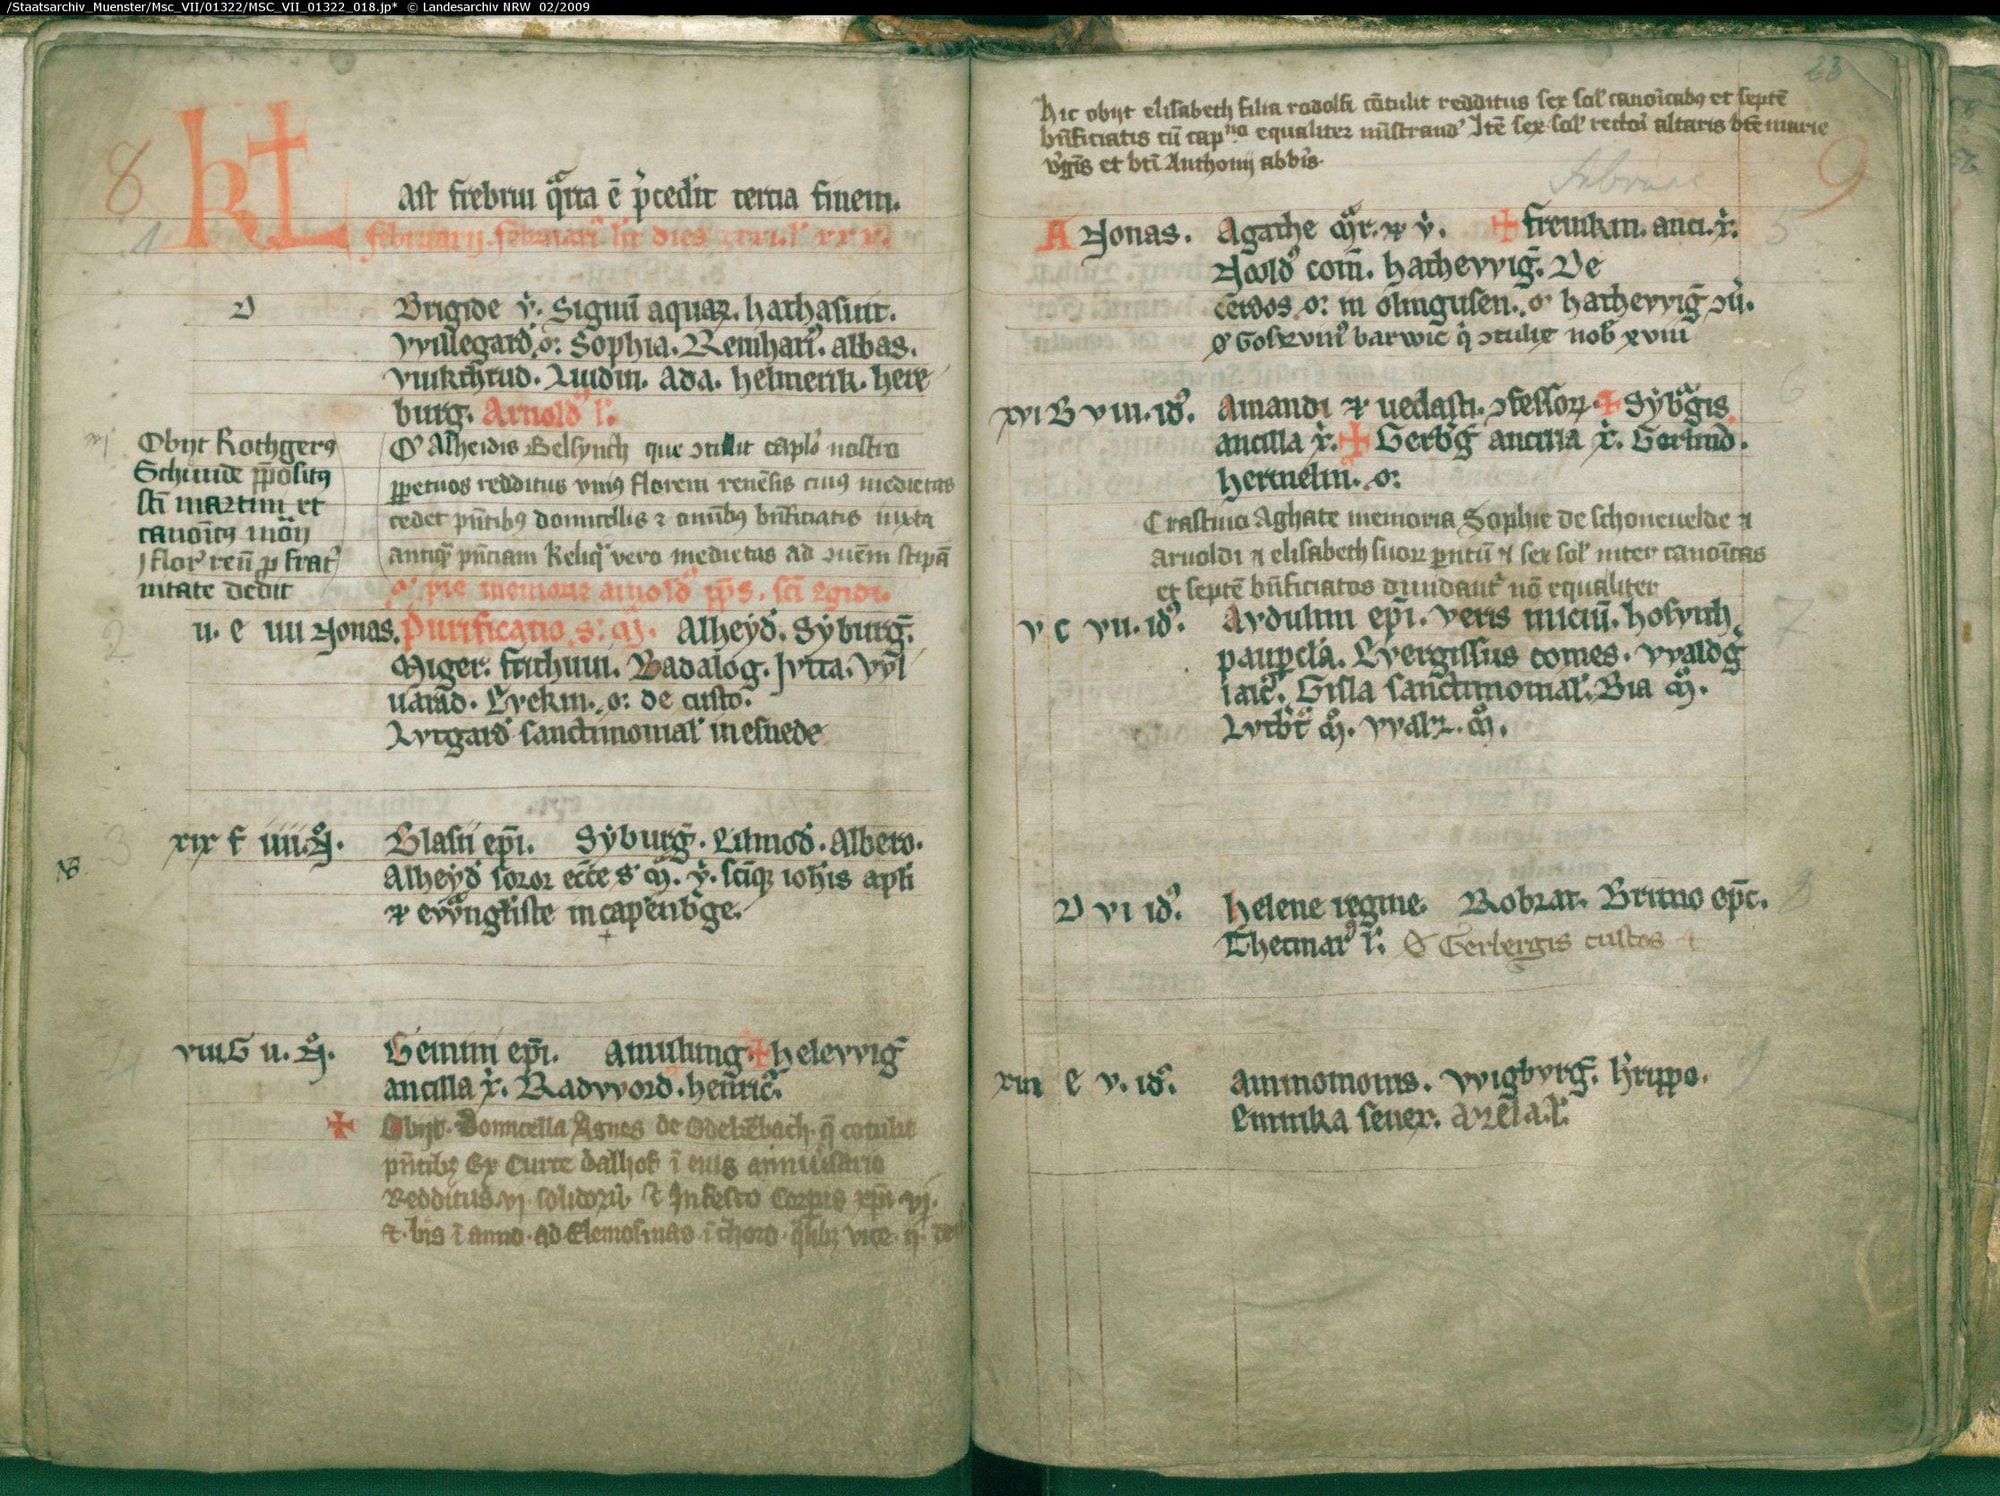 /Staatsarchiv_Muenster/Msc_VII/01322/MSC_VII_01322_018.jp* © Landesarchiv NRW 02/2009
8
KL
Ast frebrui qrta ē p̄cedit tercia finem.
1
februarij. februari
dies
D
Brigide v̇. Signū aquaꝝ. hathasuit.
VVillegard. o: Sophia. Reinhari. abbas.
Liudin. Ada. helmerik. here
burg. Arnold' l'.
Obijt Rothgerus
Schunde p̄positus
sc̄i martini et
canoīcus mōn
j flor' ren̄ p frat'
nitate dedit
O' Alheidis Belsynch que ꝯtulit capl'o nostro
ppetuos redditus vnius florem renēsis cuius medietas
cedet pn̄tibus domicellis ⁊ omībus bn̄ficiatis iuxta
antiq' pn̄ciam Reliq' vero medietas ad ꝯuēm stipā
o' pie memorie arnold' pp̄s. sc̄i Egidii.
2
u. e iiii Nonas. Purificatio. S. M. Alheyd'. Syburḡ.
Badalog. Jvtta. VVl
uarad. Lvekin. o: de custo.
Lvtgard' sanctimonial' in esuede
3
xix f iii. N. Blasii ep̄i. Syburḡ. Litmod'. Albero.
NB.
Alheyd' soror ecc̄e s' M. v̇. sc̄iqꝫ ioh̄is apl'i
⁊ evvāngl'iste in capēnb'ge.
4
viii G ii. N. Gemini ep̄i. Amulung. ✠ helevviḡ
ancilla x̄. Radvvord. henric'.
✠ Obijt. Domicella Agnes de Odekēbach. q̄ cōtulit
pn̄tibꝫ Ex Curte dalhof ī eius anniūsario
Redditus. vj. solidorū. ⁊ In festo Corpus xp̄i vj.
⁊. bis ī anno. ad Elemosinas ī choro. vice. ij.
23
hic obijt elisabeth filia rodolfi cōtulit redditus sex sol' canoīcabus et septē
bn̄ficiatis cū cap equaliter mīstrand' Itē sex sol' rectoī altaris bt̄e marie
v'gīs et bt̄i Anthonij abb̄is.
Februar
9
A Nonas. Agathe M̄r. ⁊ v̇. ✠ frenikin. anci. x̄.
5
com̄. hathevviḡ. De
o: in olingusen. o' hathevviḡ ꝯū.
barwic q̇ ꝯtulit nob' xviii
xvi B viii. id'. Amandi ⁊ uedasti. ꝯfessorꝝ ✠ Syb'gis
6
ancilla x̄. ✠ Gerb'ḡ ancilla x̄. Gertrud.
hermelin. o:
Crastino Aghate memoria Sophie de schoneuelde ⁊
Arnoldi ⁊ elisabeth suorꝝ p̄ntū ⁊ sex sol' inter canoīcas
et septē bn̄ficiatos diuidant' nō equaliter
v c vii. id'. Avdulini ep̄i. Veris iniciū. hosvuih
7
paup̄cla. Lvergissus comes. VValdḡ
laic'. Gisla sanctimonial'. Bia M.
Lvtb't M. VValt. M.
D vi id'. Helene regine. Robrat. Bruno ep̄c.
8
Thetmar' l'. O' Gerbergis custos
xiii e v. id'. Ammomonis. VVigbvrḡ. hrippo.
9
Emmika seuer. Azela. l'.